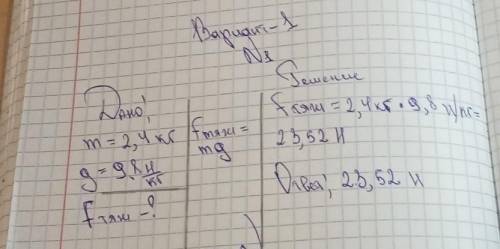 Вариант-1
N1
Дано:
m = 2,4 кг
g = 9,8 н/кг
Fтяж -?
Fтяж =
mg
Решение
Fтяж = 2,4 кг · 9,8 н/кг =
23,52 Н
Ответ: 23,52 Н